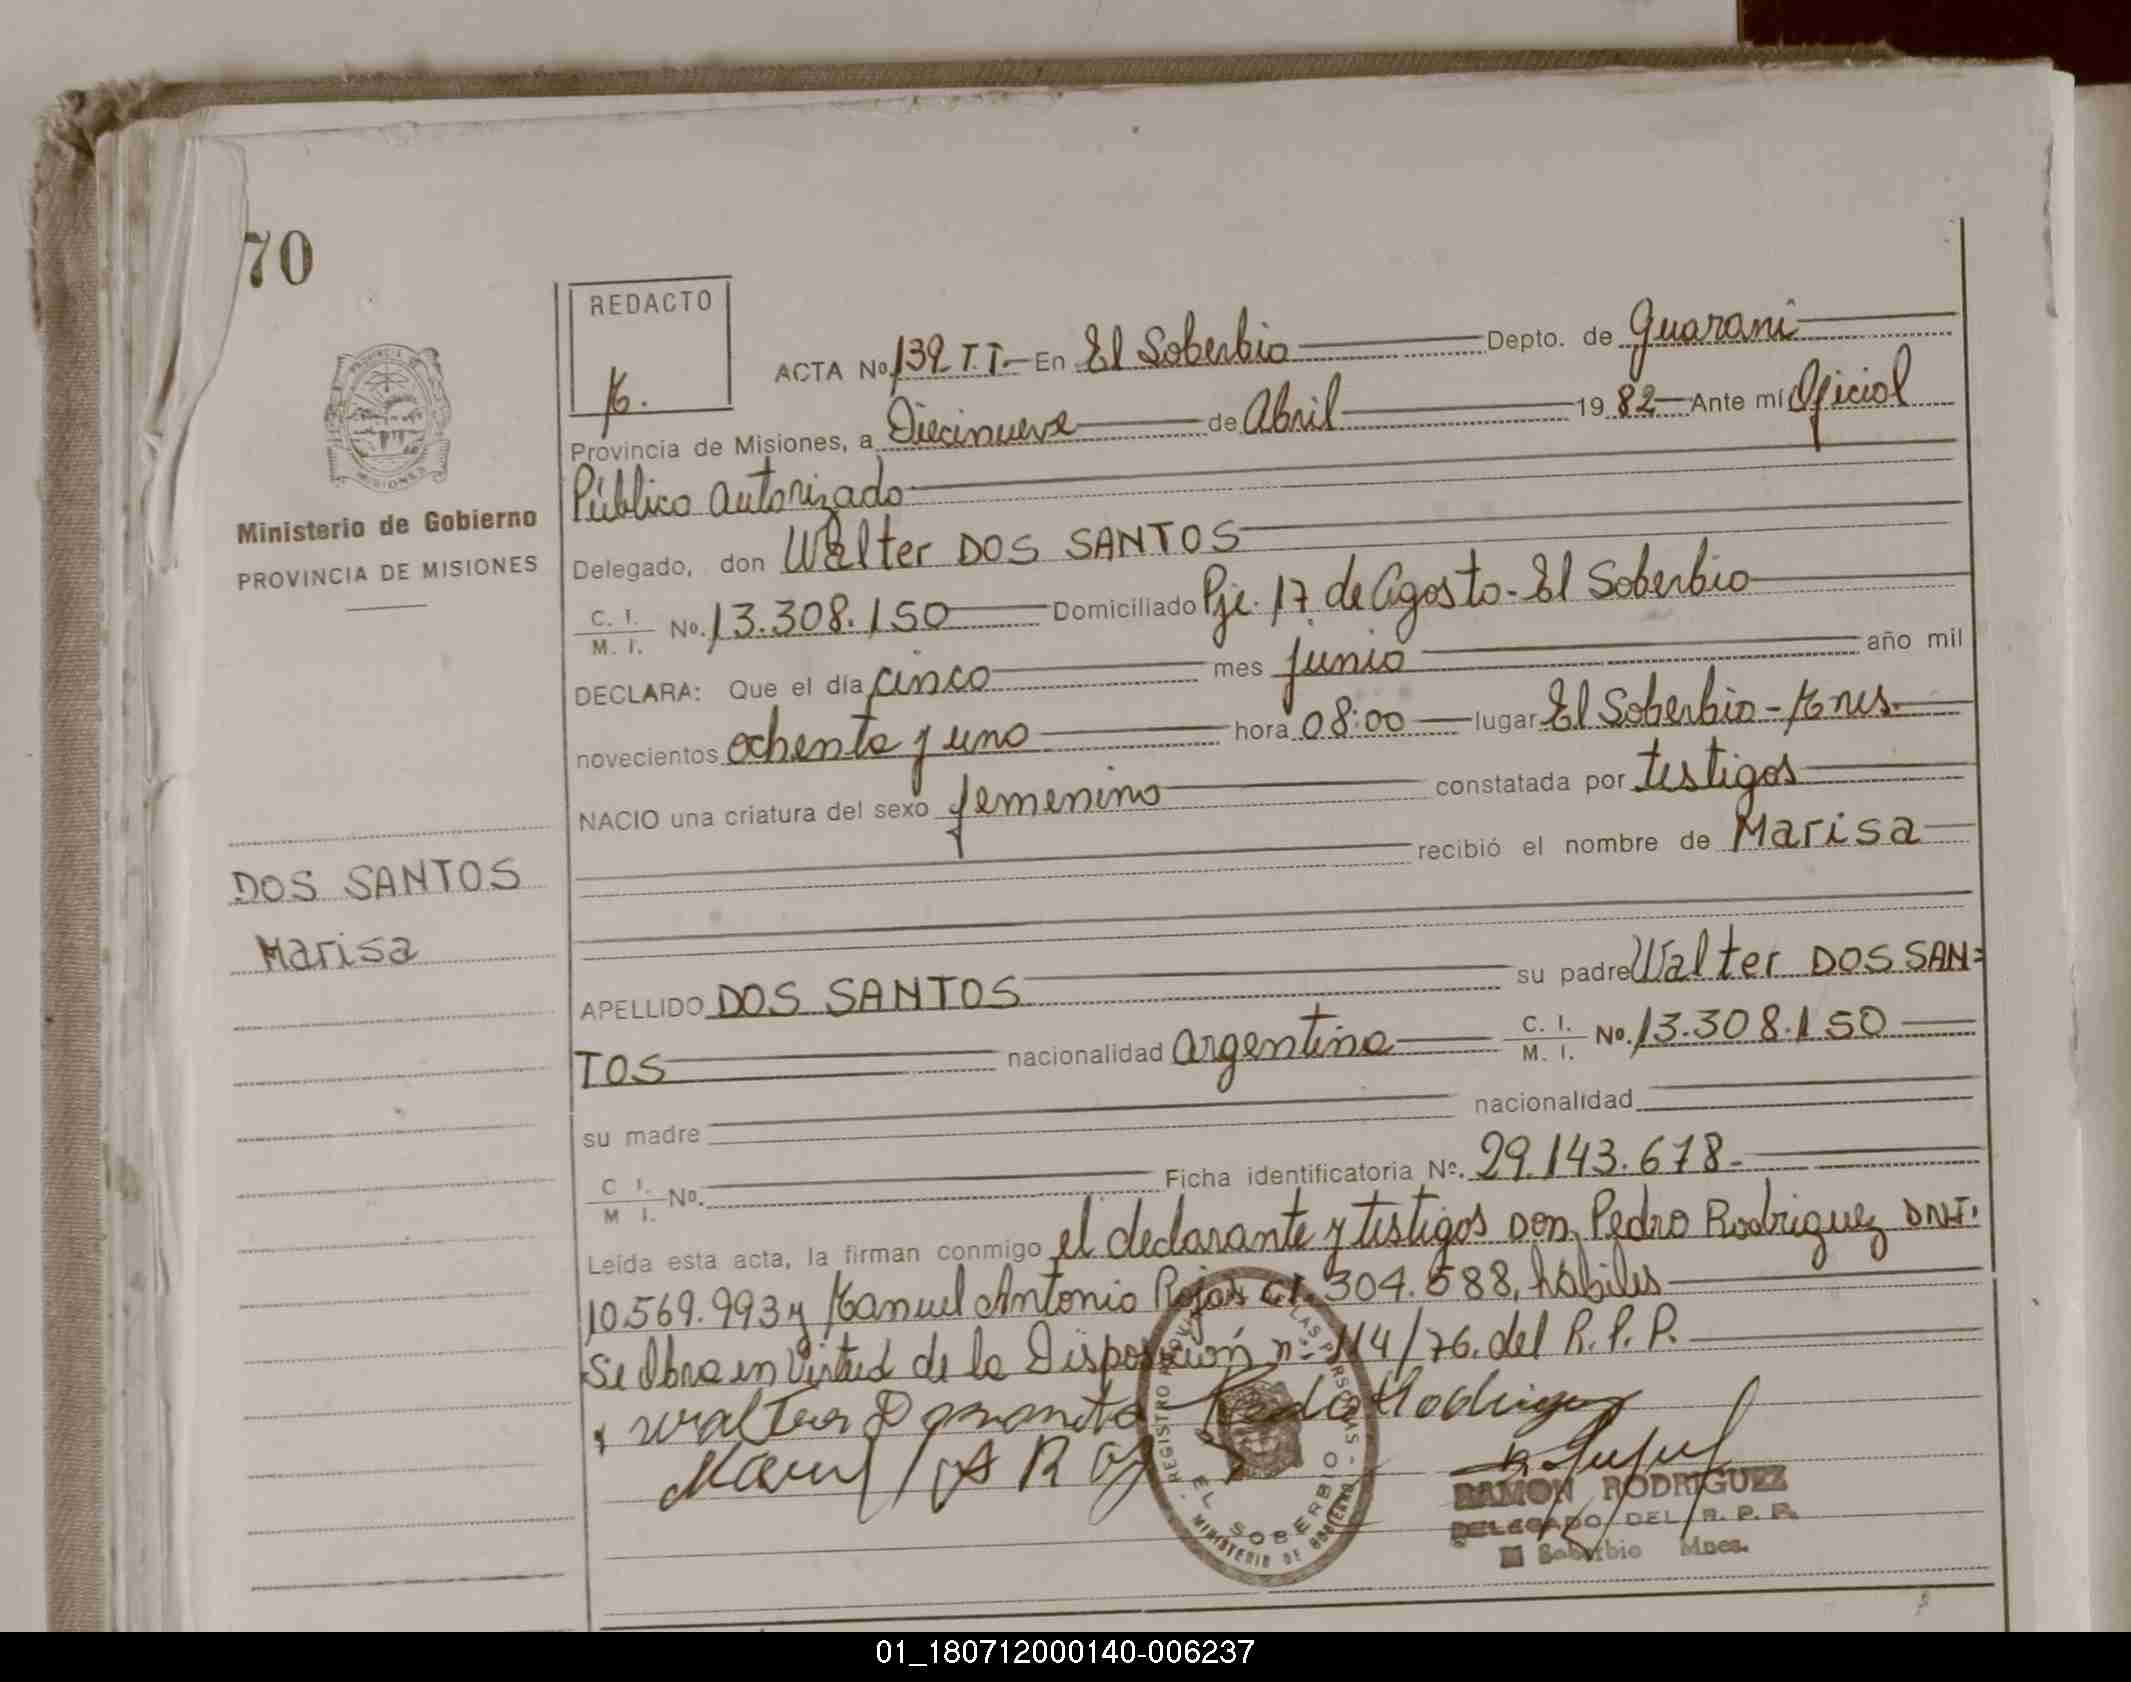 70
REDACTO
M.
ACTA No. 139 T.T.- En El Soberbio Depto. de Guaraní
Provincia de Misiones, a Diecinueve de Abril 1982 Ante mí Oficial
Público Autorizado
Ministerio de Gobierno
PROVINCIA DE MISIONES
Delegado, don Walter DOS SANTOS
C. I. M. I. No. 13.308.150 Domiciliado Pje. 17 de Agosto- El Soberbio
DECLARA: Que el día cinco mes junio año mil
novecientos ochenta y uno hora 08:00 lugar El Soberbio - Mnes.
NACIO una criatura del sexo femenino constatada por testigos
recibió el nombre de Marisa
DOS SANTOS
Marisa
APELLIDO DOS SANTOS su padre Walter DOS SAN=
TOS nacionalidad argentina C. I. M. I. No. 13.308.150
su madre nacionalidad
C I. M I. No. Ficha identificatoria No. 29.143.678-
Leída esta acta, la firman conmigo el declarante y testigos Don Pedro Rodriguez DNI.
10.569.993 y Manuel Antonio Rojas C.I. 304.588, hábiles
Se Obra en Virtud de la Disposición nº 114/76. del R.P.P.
Walter Pedro Rodriguez
Manuel A Rojas
REGISTRO PROV. LAS PERSONAS - MINISTERIO DE GOBIERNO -
EL SOBERBIO
RAMON RODRIGUEZ
DELEGADO DEL R. P. P.
El Soberbio Mnes.
01_180712000140-006237